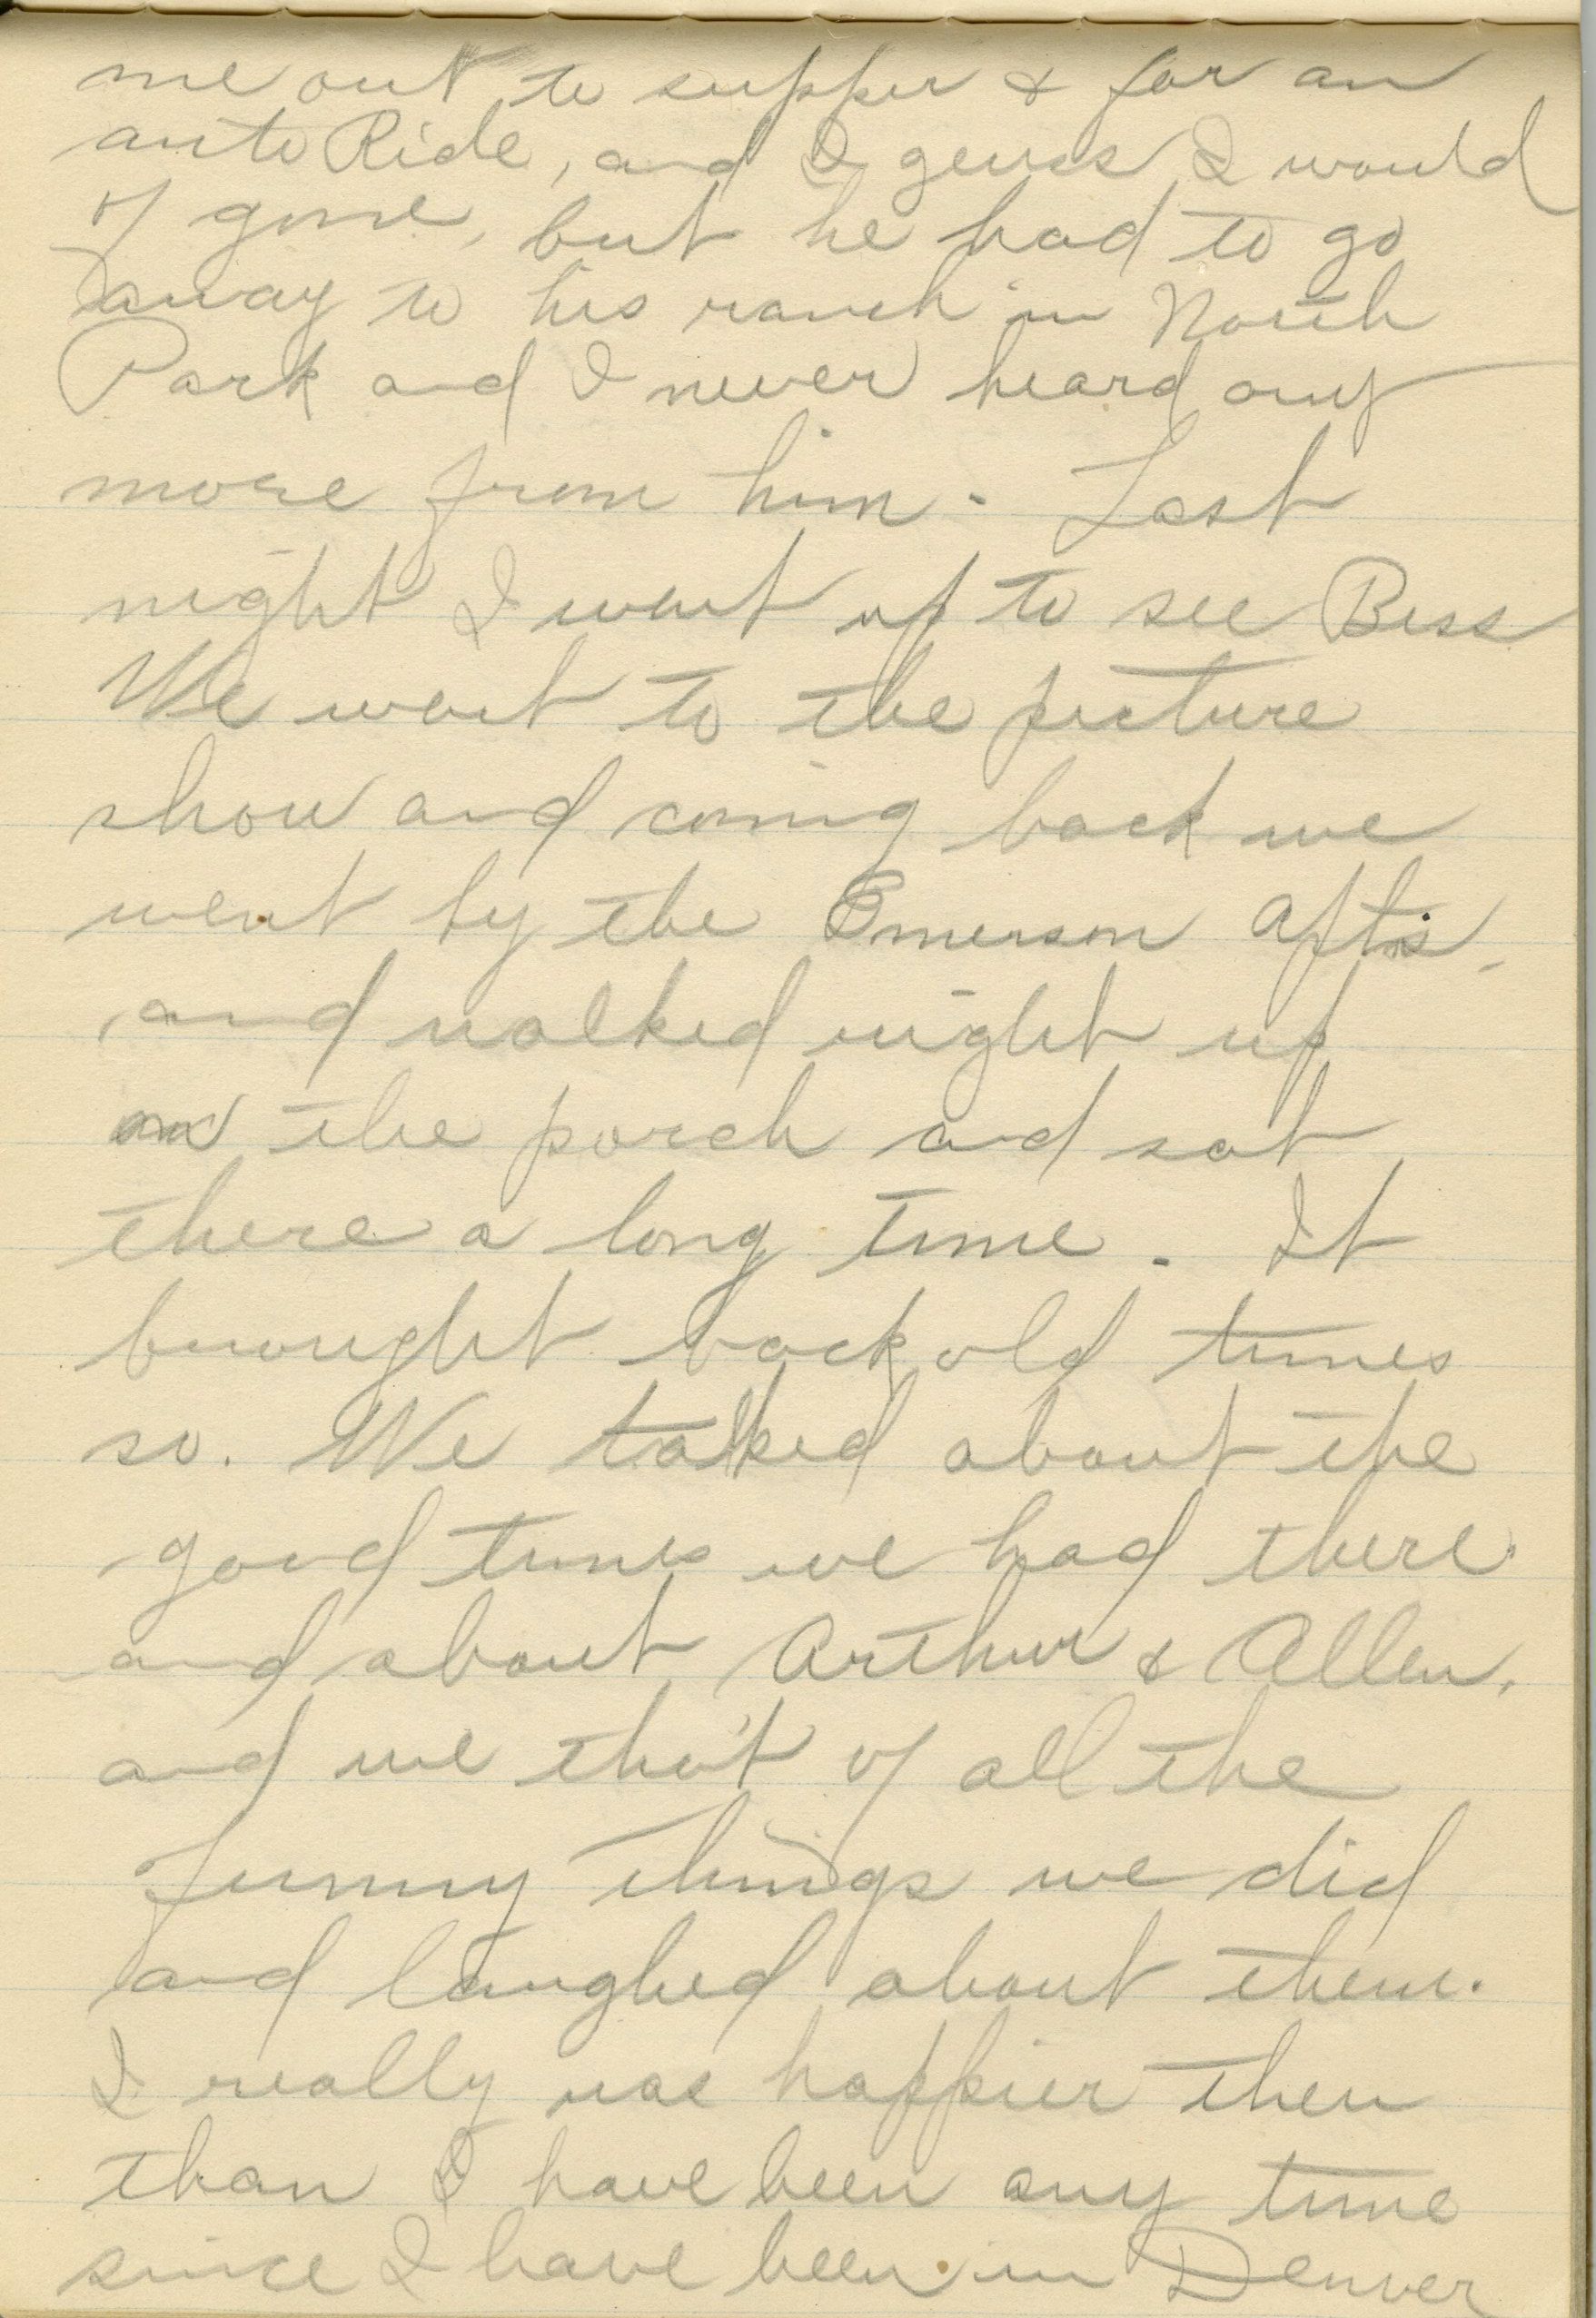 me out to supper & for an
auto Ride, and I geuss I would
of gone, but he had to go
away to his ranch in North
Park and I never heard any
more from him. Last
night I went up to see Bess
We went to the picture
show and coming back we
went by the Emerson Apts,
and walked right up
on the porch and sat
there a long time. It
brought back old times
so. We talked about the
good times we had there.
and about Arthur & Allen,
and we tho't of all the
funny things we did
and laughed about them.
I really was happier then
than I have been any time
since I have been in Denver